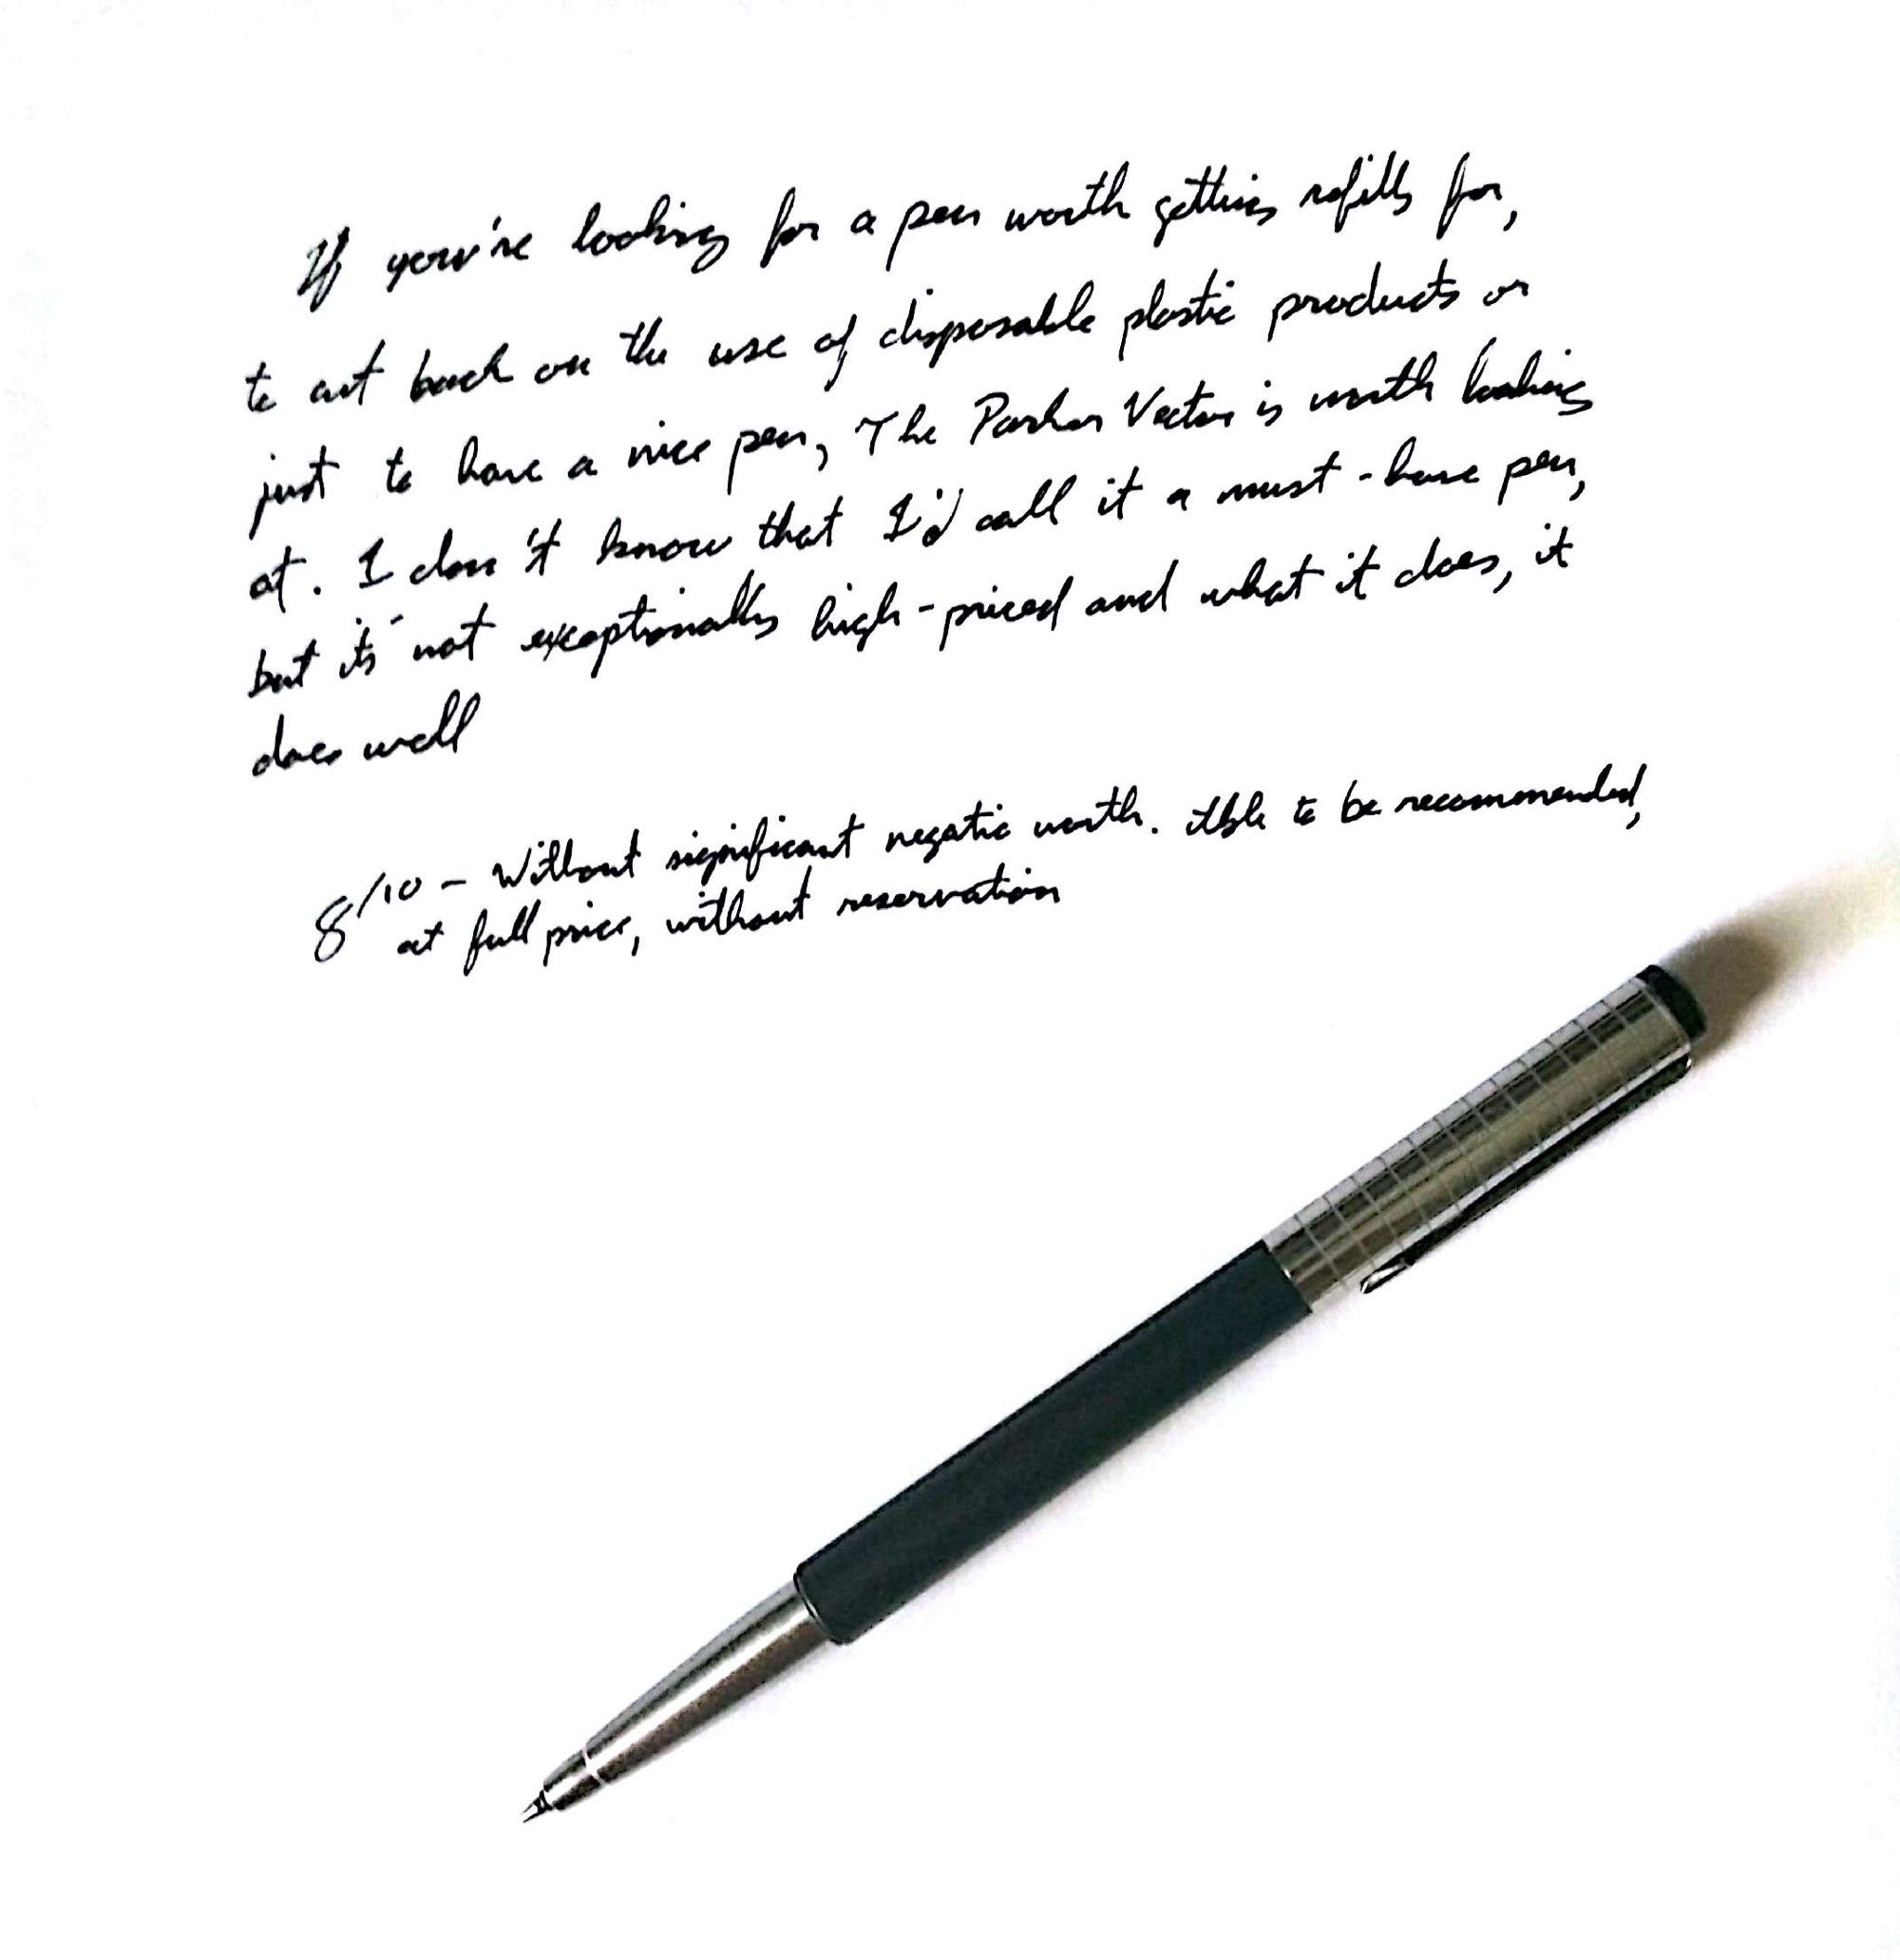 If you're looking for a pen worth getting refills for,
to cut back on the use of disposable plastic products or
just to have a nice pen, The Parker Vector is worth looking
at. I don't know that I'd call it a must-have pen,
but it's not exceptionally high-priced and what it does, it
does well
8/10 - Without significant negatic worth. Able to be recommended,
at full price, without reservation